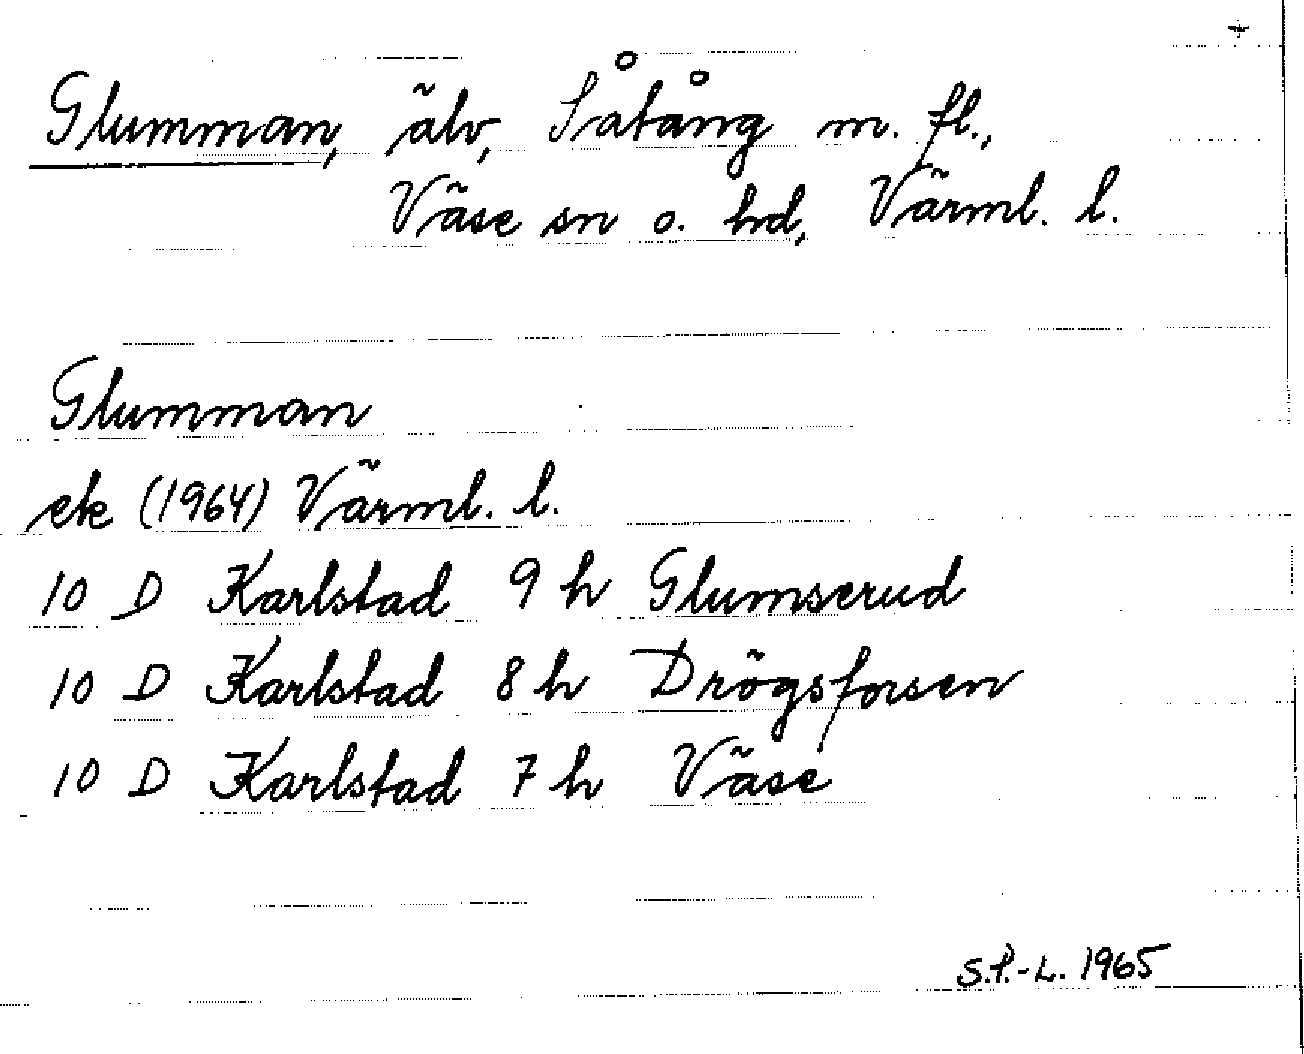 Glumman, älv, Såtång m. fl.,
Väse sn o. hd, Värml. l.
Glumman
ek (1964) Värml. l.
10 D Karlstad 9 h Glumserud
10 D Karlstad 8 h Drögsforsen
10 D Karlstad 7 h Väse
S.P.-L. 1965